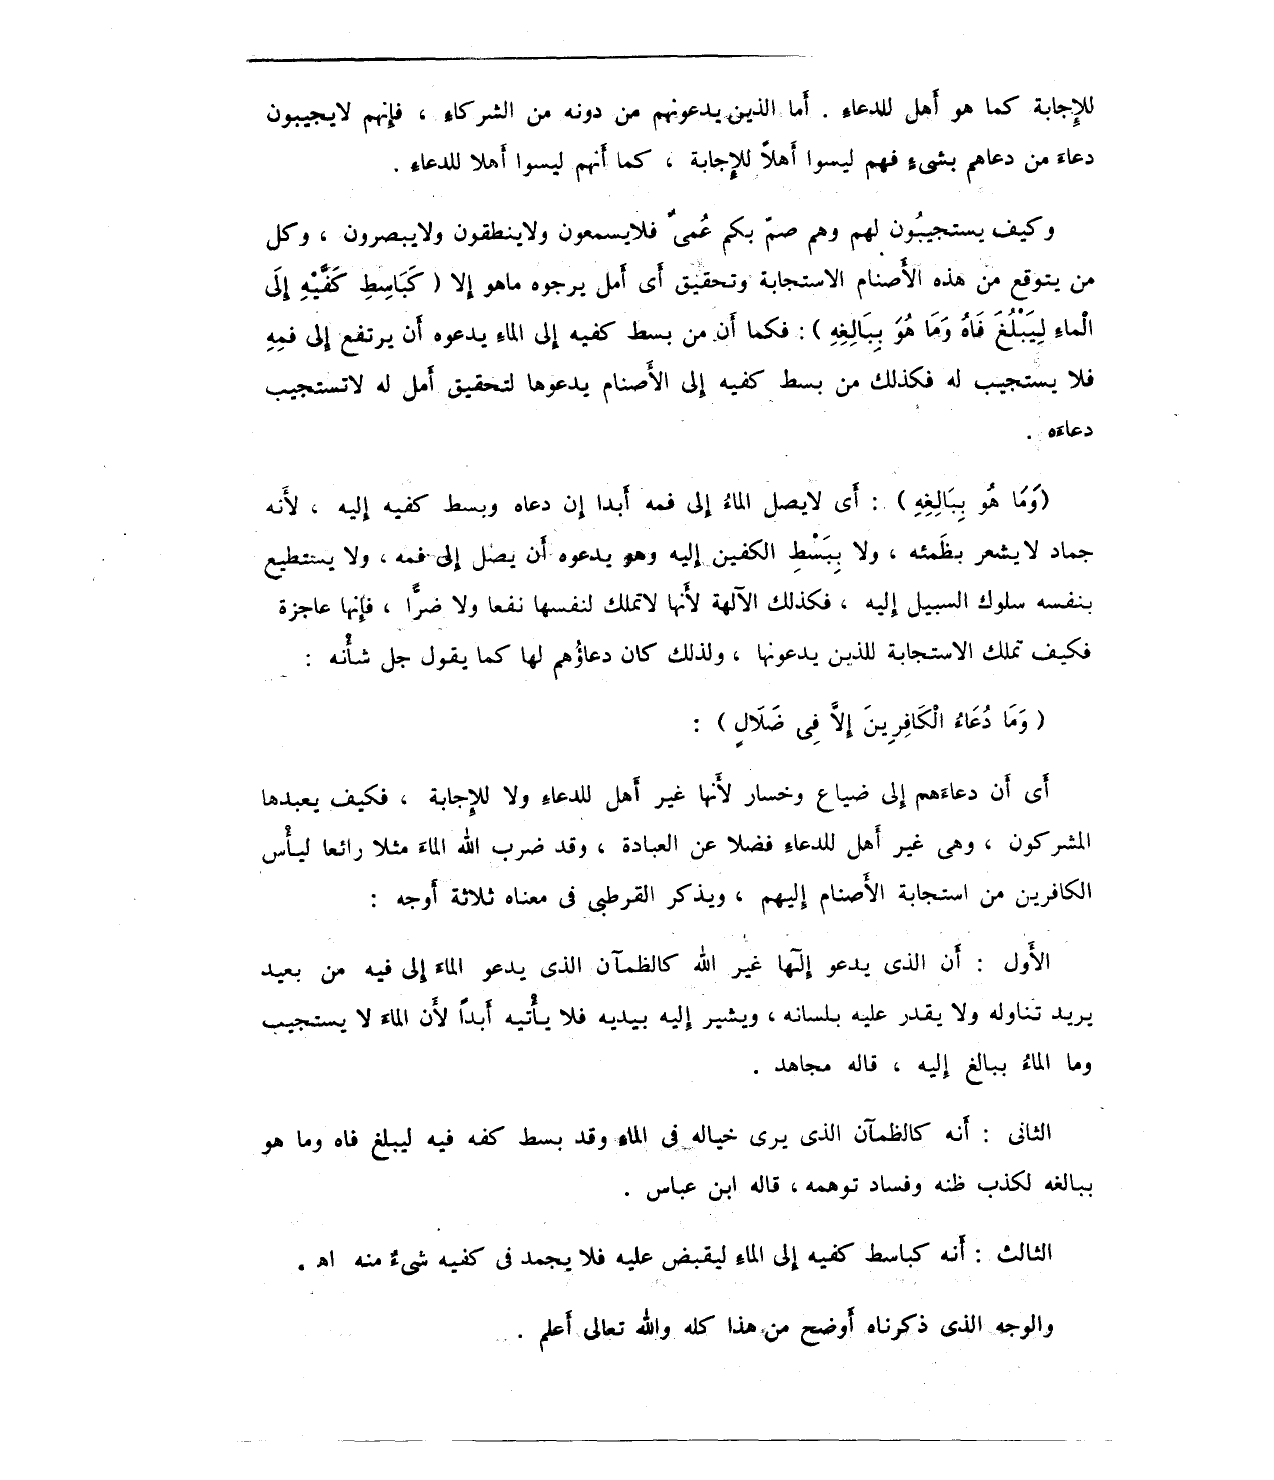 للإِجابة كما هو أَهل للدعاءِ . أَما الذين يدعونهم من دونه من الشركاءِ ، فإِنهم لايجيبون
دعاءَ من دعاهم بشىءٍ فهم ليسوا أَهلاً للإِجابة ، كما أَنهم ليسوا أَهلا للدعاءِ .
وكيف يستجيبُون لهم وهم صمّ بكم عُمىٌ فلايسمعون ولاينطقون ولايبصرون ، وكل
من يتوقع من هذه الأَصنام الاستجابة وتحقيق أَى أَمل يرجوه ماهو إلا ( كَبَاسِطِ كَفَّيْهِ إِلَى
الْماءِ لِيَبْلُغَ فَاهُ وَمَا هُوَ بِبَالِغِهِ ) : فكما أَن من بسط كفيه إِلى الماءِ يدعوه أَن يرتفع إِلى فمِهِ
فلا يستجيب له فكذلك من بسط كفيه إِلى الأَصنام يدعوها لتحقيق أَمل له لاتستجيب
دعاءَه .
(وَمَا هُو بِبَالِغِهِ ) : أَى لايصل الماءُ إِلى فمه أَبدا إِن دعاه وبسط كفيه إِليه ، لأَنه
جماد لايشعر بظَمئه ، ولا بِبَسْطِ الكفين إِليه وهو يدعوه أَن يصل إِلى فمه ، ولا يستطيع
بنفسه سلوك السبيل إِليه ، فكذلك الآلهة لأَنها لاتملك لنفسها نفعا ولا ضرًّا ، فإِنها عاجزة
فكيف تملك الاستجابة للذين يدعونها ، ولذلك كان دعاؤُهم لها كما يقول جل شأْنه :
( وَمَا دُعَاءُ الْكَافِرِينَ إِلاَّ فِى ضَلَالٍ ) :
أَى أَن دعاءَهم إِلى ضياع وخسار لأَنها غير أَهل للدعاءِ ولا للإِجابة ، فكيف يعبدها
المشركون ، وهى غير أَهل للدعاءِ فضلا عن العبادة ، وقد ضرب الله الماءَ مثلا رائعا ليأْس
الكافرين من استجابة الأَصنام إِليهم ، ويذكر القرطبى فى معناه ثلاثة أَوجه :
الأَول : أَن الذى يدعو إِلَٰها غير الله كالظمآن الذى يدعو الماءَ إِلى فيه من بعيد
يريد تناوله ولا يقدر عليه بلسانه ، ويشير إِليه بيديه فلا يأْتيه أَبداً لأَن الماءَ لا يستجيب
وما الماءُ ببالغ إِليه ، قاله مجاهد .
الثانى : أَنه كالظمآن الذى يرى خياله فى الماءِ وقد بسط كفه فيه ليبلغ فاه وما هو
ببالغه لكذب ظنه وفساد توهمه ، قاله ابن عباس .
الثالث : أَنه كباسط كفيه إِلى الماءِ ليقبض عليه فلا يجمد فى كفيه شىءٌ منه اه .
والوجه الذى ذكرناه أَوضح من هذا كله والله تعالى أَعلم .